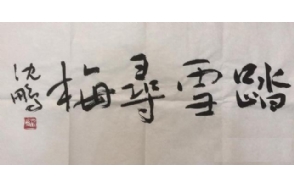 踏雪尋梅
沈鹏